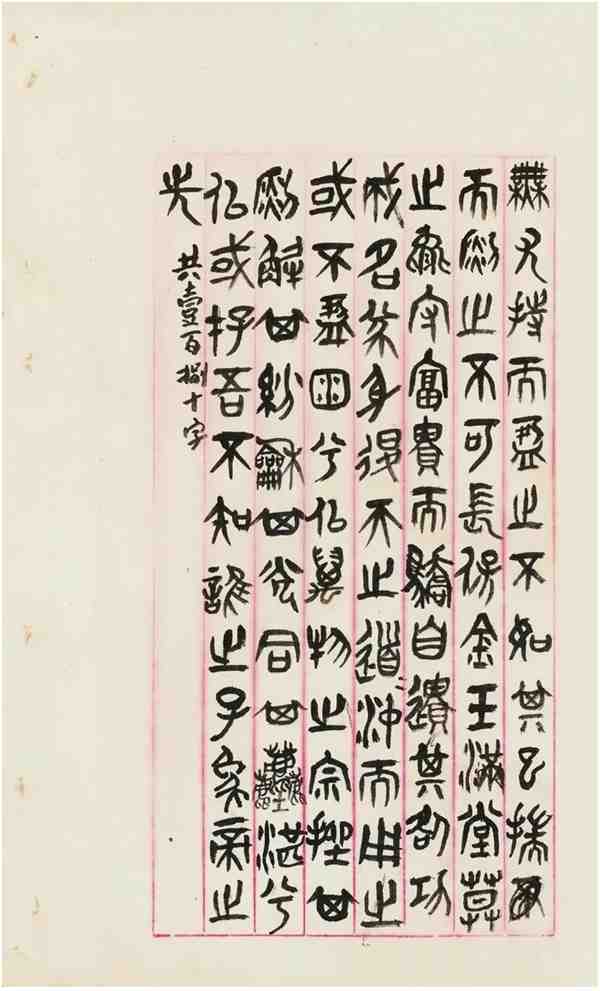 無尤持而盈之不如其已揣
而銳之不可長保金玉滿堂莫
之能守富貴而驕自遺其咎功
成名遂身退天之道〻沖而用之
或不盈淵兮似萬物之宗挫其
銳解其紛和其光同其塵湛兮
似或存吾不知誰之子象帝之
先
共壹百捌十字